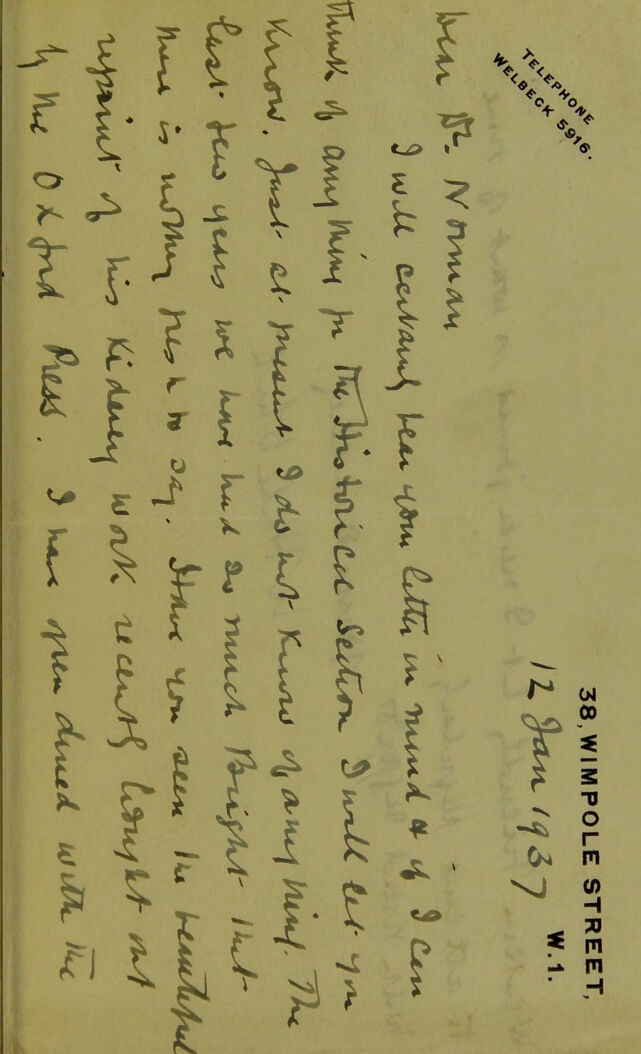 TELEPHONE
WELBECK 5916.
38, WIMPOLE STREET,
W.1.
12 Jan 1937
Dear Dr. Norman
I will certainly bear your letter in mind & if I can
think of anything for the Historical Section I will let you
know. Just at present I do not know of anything. The
last few years we have had so much Bright that
there is nothing fresh to say. Have you seen the beautiful
reprint of his Kidney work recently brought out
by the Oxford Press. I have often dined with the